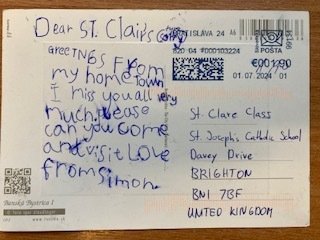 Dear ST. Clair's
GreeTNGS From
my home town
I miss you all very
much. please
can you come
and visit Love
from Simon.
BRATISLAVA 24
820 04 #000103224
POSTA
€001,90
01.07.2024 01
St. Clare Class
St. Joseph's Catholic School
Davey Drive
BRIGHTON
BN1 7BF
UNITED KINGDOM
Banská Bystrica I